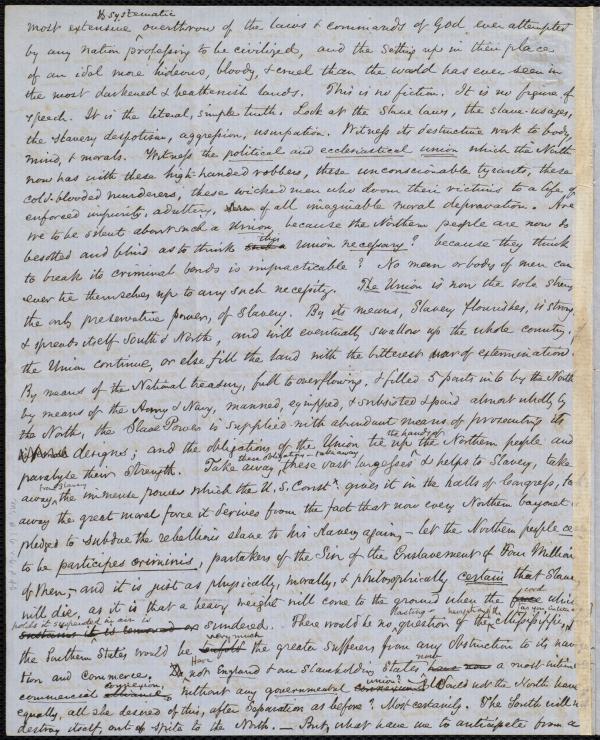 & systematic
most extensive overthrow of the laws & commands of God ever attempted
by any nation professing to be civilized, and the setting up in their place
of an idol more hideous, bloody, & cruel than the world has ever seen in
the most darkened & heathenish lands. This is no fiction. It is no figure of
speech. It is the literal, simple truth. Look at the Slave laws, the slave-usages,
the slavery despotism, aggression, usurpation. Witness its destructive work to body,
mind, & morals. Witness the political and ecclesiastical union which the North
now has with these high-handed robbers, these unconscionable tyrants, these
cold-blooded murderers, these wicked men who doom their victims to a life of
enforced impurity, adultery, & of all imaginable moral depravation. Are
we to be silent about such a Union, because the Northern people are now so
besotted and blind as to think this Union necessary? because they think
to break its criminal bonds is impracticable? No man or body of men can
ever tie themselves up to any such necessity. The Union is now the sole
the only preservative power, of Slavery. By its means, Slavery flourishes, is strong
& spreads itself South & North, and will eventually swallow up the whole country, if
the Union continue, or else fill the land with the bitterest war of extermination.
By means of the National treasury, full to overflowing, & filled 5 parts in 6 by the North
by means of the Army & Navy, manned, equipped, & subsisted & paid almost wholly by
the North, the Slave Power is supplied with abundant means of prosecuting its
designs; and the obligations of the Union tie up the hands of the Northern people and
paralyze their strength. Take away these obligations – take away these vast largesses & helps to Slavery, take
away the immense power which the U.S. Const<sup>n</sup>. gives it in the halls of Congress, take
away the great moral force it derives from the fact that now every Northern bayonet is
pledged to subdue the rebellious slave to his slavery again, – let the Northern people cease
to be participes criminis, partakers of the Sin of the Enslavement of Four Million
of Men, – and it is just as physically, morally, & philosophically certain that Slavery
will die, as it is that a heavy weight will come to the ground when the cord which
holds it suspended in air is sundered. There would be no question of the Mississippi, &
the Southern States would be very much the greater sufferers from any Obstruction to its naviga-
tion and commerce. Have not England & our Slaveholding States now a most intimate
commercial connexion, without any governmental union? & Would not the North have
equally, all she desired of this, after separation as before? Most certainly. The South will not
destroy itself, out of spite to the North. — But, what have we to anticipate from a